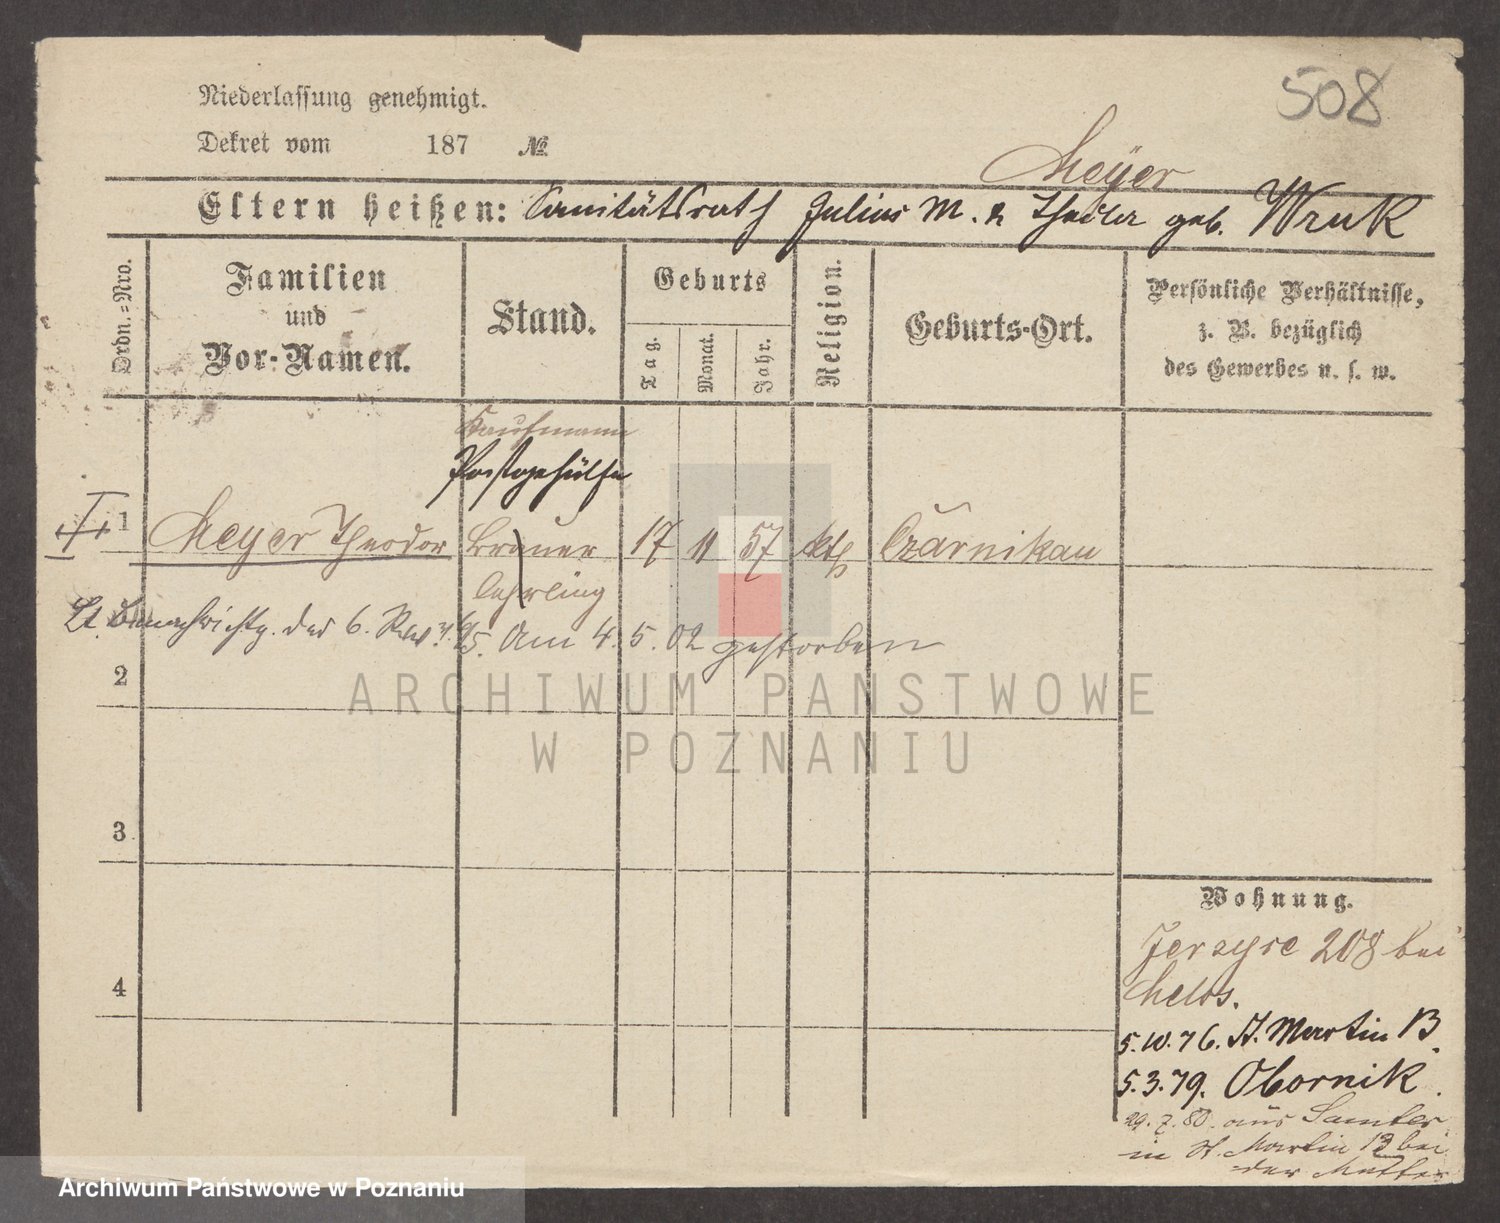 508
Niederlassung genehmigt.
Dekret vom 187 №
Meyer
Eltern heißen: Sanitätsrath Julius M. & Thecla geb. Wruk
Ordn.-Nro.
Familien und Vor-Namen.
Stand.
Geburts
Tag.
Monat.
Jahr.
Religion.
Geburts-Ort.
Persönliche Verhältnisse,
z. B. bezüglich
des Gewerbes u. s. w.
Kaufmann
Postgehülfe
I
1 Meyer Theodor Brauer 17 11 57 kth Czarnikau
lehrling
Lt. Benachrichtg. des 6. Rev. am 4. 5. 02 gestorben
2
ARCHIWUM PAŃSTWOWE
W POZNANIU
3
Wohnung.
Jerzyce 208 bei
4
5.10.76. St. Martin 13.
5.3.79. Obornik.
29.7.80. aus Samter
in St. Martin 13 bei
der Mutter
Archiwum Państwowe w Poznaniu